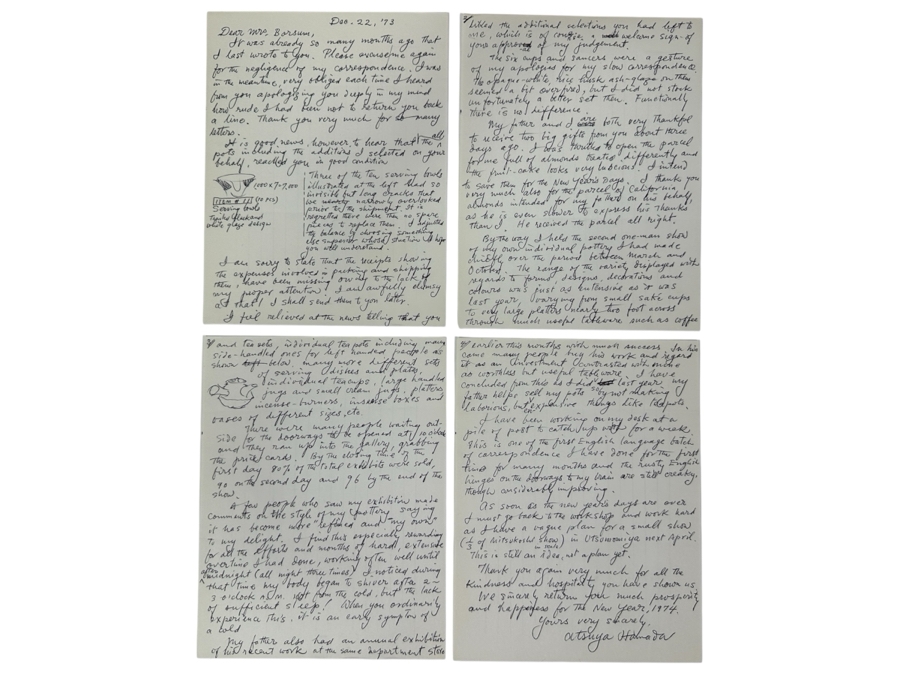 Dec. 22, '73
Dear Mrs. Borsum,
It was already so many months ago that
I last wrote to you. Please excuse me again
for the negligence of my correspondence. I was
in the meantime, very obliged each time I heard
from you apologizing you deeply in my mind
how rude I had been not to return you back
a line. Thank you very much for so many
letters.
It is good news, however, to hear that all the
pots including the additions I selected on your
behalf, reached you in good condition
(100 x 7-7,000
ITEM # 11 (10 pcs)
Serving bowls
white glaze design
Three of the ten serving bowls
illustrated at the left had so
invisible but long cracks that
we narrowly overlooked
prior to the shipment. It is
regretted there were then no spare
pieces to replace them. I adjusted
the balance by choosing something
else superior whose situation I hope
you will understand.
I am sorry to state that the receipts showing
the expenses involved in packing and shipping
them, have been missing owing to the lack of
my proper attention! I am awfully clumsy
at that! I shall send them to you later.
I feel relieved at the news telling that you
2/ liked the additional selections you had left to
me, which is of course, a welcome sign of
your approval of my judgement.
The six cups and saucers were a gesture
of my apologies for my slow correspondence.
The opaque-white, rice husk ash-glaze on them
seemed a bit overfired, but I did not stock
unfortunately a better set then. Functionally
there is no difference.
My father and I are both very thankful
to receive two big gifts from you about three
days ago. I was thrilled to open the parcel
for me full of almonds treated differently and
the fruit-cake looks very luscious. I intend
to save them for the New Year's Days. I thank you
very much also for the parcel of California
almonds intended for my father on his behalf,
as he is even slower to express his thanks
than I. He received the parcel all right.
By the way I held the second one-man show
of my own individual pottery I had made
chiefly over the period between March and
October. The range of the variety displayed with
regards to forms, designs, decorations and
colours was just as extensive as it was
last year, varying from small saké cups
to very large platters nearly two foot across
through much useful tableware such as coffee
3/ and tea sets, individual teapots including many
side-handled ones for left handed people as
shown below, many more different sets
of serving dishes and plates,
individual teacups, large handled
jugs and small cream jugs, platters
incense-burners, incense boxes and
vases of different sizes, etc.
There were many people waiting out-
side for the doorways to be opened at 10 o'clock
and they ran up into the gallery, grabbing
the price cards. By the closing time of the
first day 80% of the total exhibits were sold,
90 on the second day and 96 by the end of the
show.
A few people who saw my exhibition made
comments on the style of my pottery saying
it has become more "refined and "my own"
to my delight. I find this especially rewarding
for all the efforts and months of hard, extensive
overtime I had done, working often well until
after midnight (all night three times). I noticed during
that time my body began to shiver after 2-
3 o'clock A.M. not from the cold, but the lack
of sufficient sleep! When you ordinarily
experience this, it is an early symptom of
a cold.
My father also had an annual exhibition
of his recent work at the same department store
4/ earlier this months with much success. In his
case many people buy his work and regard
it as an investment contrasted with mine
as worthless but useful tableware. I have
concluded from this as I did last year, my
father helps sell my pots by not making
laborious, but expensive things like teapots.
I have been working on my desk at a
pile of post to catch up with for a week.
This is one of the first English language batch
of correspondence I have done for the first
time for many months and the rusty English
hinges on the doorways to my brain are still creaky,
though considerably improving.
As soon as the new year's days are over
I must go back to the workshop and work hard
as I have a vague plan for a small show
(1/3 of Mitsukoshi show) in Utsunomiya next April.
in scale
This is still an idea, not a plan yet.
Thank you again very much for all the
kindness and hospitality you have shown us.
We sincerely return you much prosperity
and happiness for the New Year, 1974.
Yours very sincerely,
Atsuya Hamada